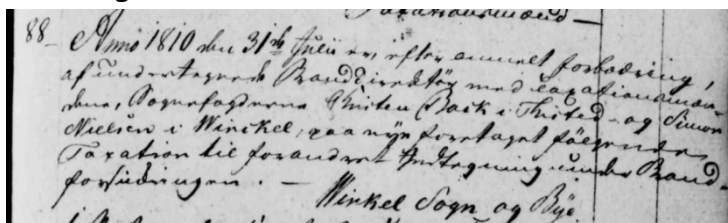 Taxationsmænd –
88 – Anno 1810 den 31te Julii er, efter anmelt forbædring,
af undertegnede Branddirektör med taxationsmæn-
dene, Sognefogderne Christen Back i Thisted og Simon
Nielsen i Winckel, paa nye foretaget fölgende
Taxation til forandret Indtegning under Brand
forsikringen. –
Winkel Sogn og Bÿe